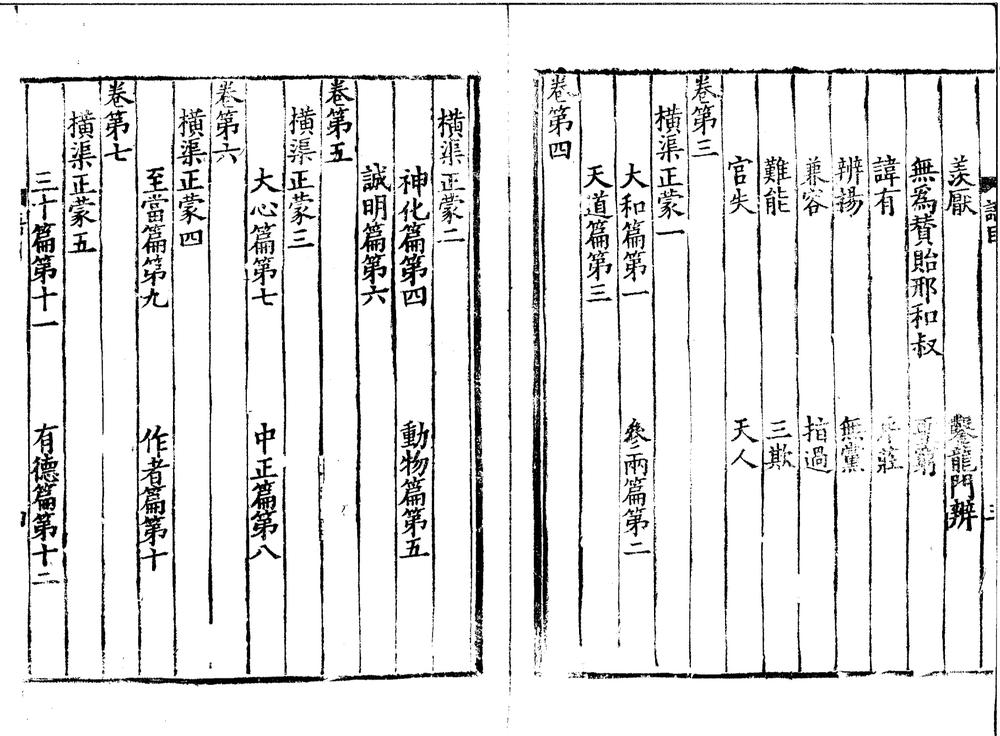 羨厭　鑿龍門辨
無爲贊貽邢和叔
諱有
辨謗　無黨
兼容　指過
難能　三欺
官失　天人
卷第三
橫渠正蒙一
大和篇第一　參兩篇第二
天道篇第三
卷第四
橫渠正蒙二
神化篇第四　動物篇第五
誠明篇第六
卷第五
橫渠正蒙三
大心篇第七　中正篇第八
卷第六
橫渠正蒙四
至當篇第九　作者篇第十
卷第七
橫渠正蒙五
三十篇第十一　有德篇第十二